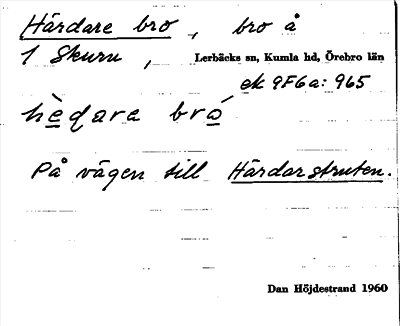 Härdare bro, bro å
1 Skuru, Lerbäcks sn, Kumla hd, Örebro län
ek 9F6a: 965
hèqara bró
På vägen till Härdarstruten.
Dan Höjdestrand 1960